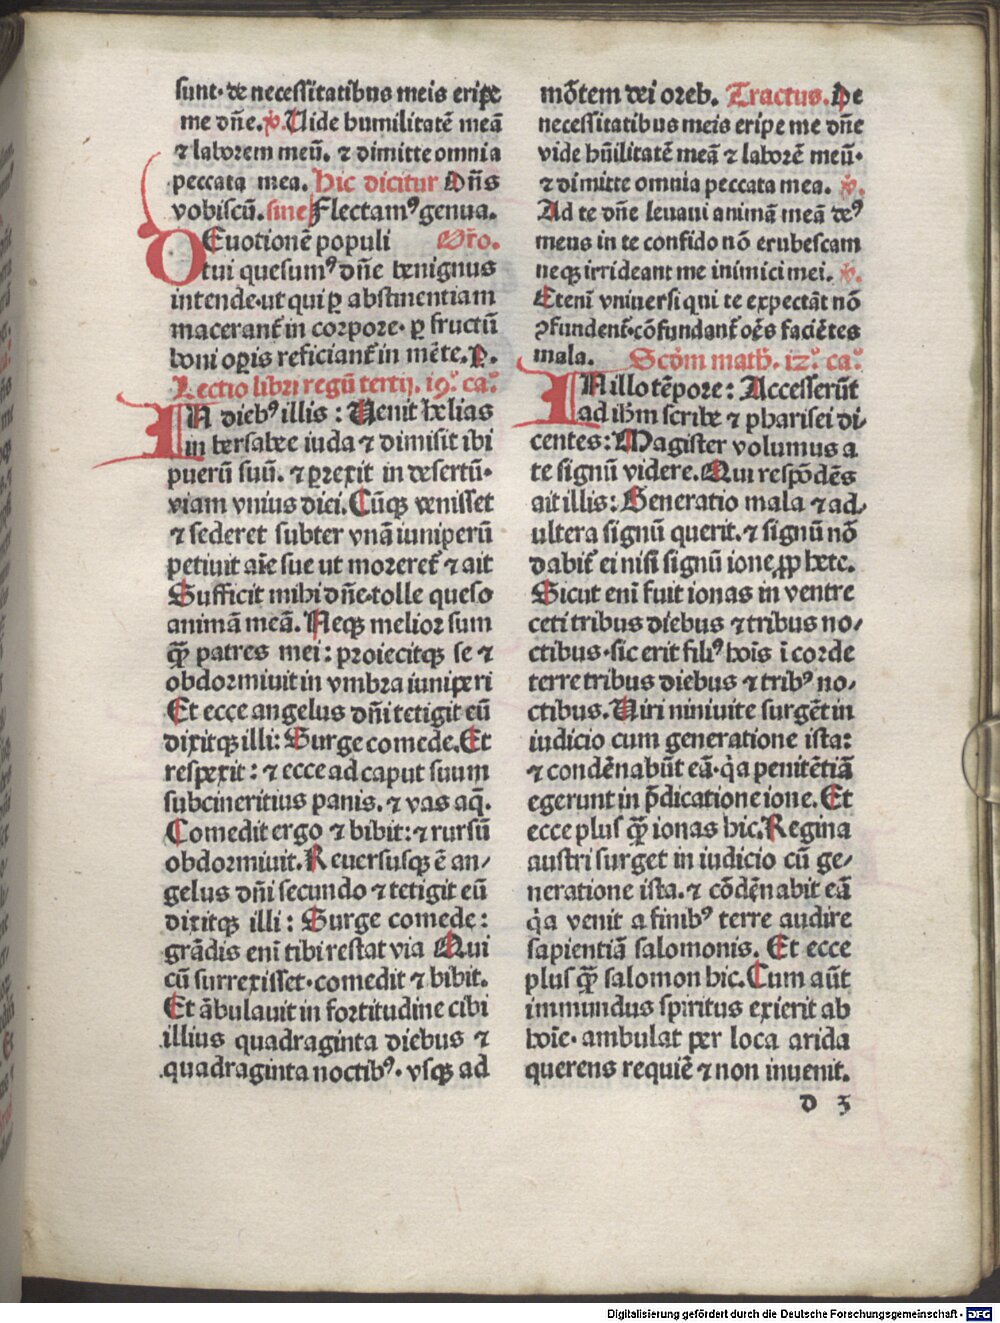 sunt· de necessitatibus meis eripe
me dñe. ℣. Uide humilitatē meā
⁊ laborem meū. ⁊ dimitte omnia
peccata mea. Hic dicitur Dñs
vobiscū. sine Flectamꝰ genua.
DEuotionē populi Oro.
tui quesumꝰ dñe benignus
intende·ut qui ꝑ abstinentiam
macerant᷑ in corpore· ꝑ fructū
boni oꝑis reficiant᷑ in mēte. P.
Lectio libri regū tertij. 19.º ca.º
IN diebꝰ illis: Uenit helias
in bersabee iuda ⁊ dimisit ibi
puerū suū. ⁊ ꝑrexit in desertū·
viam vnius diei. Cūqꝫ venisset
⁊ sederet subter vnā iuniperū
petiuit aīe sue ut moreret᷑ ⁊ ait
Sufficit mihi dñe·tolle queso
animā meā. Neqꝫ melior sum
qꝫ̄ patres mei: proiecitqꝫ se ⁊
obdormiuit in vmbra iuniperi
Et ecce angelus dñi tetigit eū
dixitqꝫ illi: Surge comede. Et
respexit: ⁊ ecce ad caput suum
subcineritius panis. ⁊ vas aq̄.
Comedit ergo ⁊ bibit: ⁊ rursū
obdormiuit. Reuersusqꝫ ē an/
gelus dñi secundo ⁊ tetigit eū
dixitqꝫ illi: Surge comede:
grādis enī tibi restat via Qui
cū surrexisset· comedit ⁊ bibit.
Et ābulauit in fortitudine cibi
illius quadraginta diebus ⁊
quadraginta noctibꝰ· vsqꝫ ad
mōtem dei oreb. Tractus. De
necessitatibus meis eripe me dñe
vide hūilitatē meā ⁊ laborē meū·
⁊ dimitte omnia peccata mea. ℣.
Ad te dñe leuaui animā meā deꝰ
meus in te confido nō erubescam
neqꝫ irrideant me inimici mei. ℣.
Etenī vniuersi qui te expectāt nō
ꝯfundent᷑·cōfundant᷑ oēs faciētes
mala. Scdm math. 12.º ca.º
IN illo tēpore: Accesserūt
ad ihm scribe ⁊ pharisei di-
centes: Magister volumus a
te signū videre. Qui respōdēs
ait illis: Generatio mala ⁊ ad/
ultera signū querit. ⁊ signū nō
dabit᷑ ei nisi signū ione ꝓphete.
Sicut enī fuit ionas in ventre
ceti tribus diebus ⁊ tribus no/
ctibus· sic erit filiꝰ hoīs ī corde
terre tribus diebus ⁊ tribꝰ no/
ctibus. Uiri niniuite surgēt in
iudicio cum generatione ista:
⁊ condēnabūt eā· q̇a penitētiā
egerunt in p̄dicatione ione. Et
ecce plus qꝫ̄ ionas hic. Regina
austri surget in iudicio cū ge/
neratione ista. ⁊ cōdēnabit eā
q̇a venit a finibꝰ terre audire
sapientiā salomonis. Et ecce
plus qꝫ̄ salomon hic. Cum aūt
immundus spiritus exierit ab
hoīe· ambulat per loca arida
querens requiē ⁊ non inuenit.
d 3
Digitalisierung gefördert durch die Deutsche Forschungsgemeinschaft - DFG